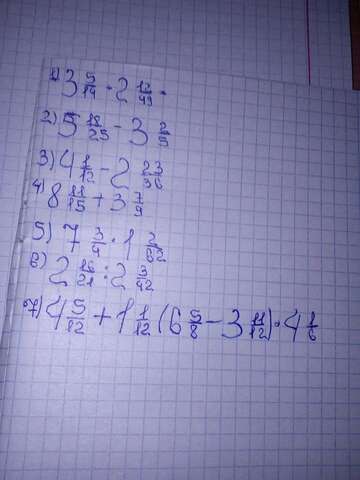 1) 3 5/14 · 2 12/49 .
2) 5 18/25 - 3 2/5
3) 4 1/12 - 2 23/36
4) 8 11/15 + 3 7/9
5) 7 3/4 · 1 2/62
6) 2 16/21 : 2 3/42
7) 4 5/12 + 1 1/12 (6 5/8 - 3 11/12) · 4 1/6